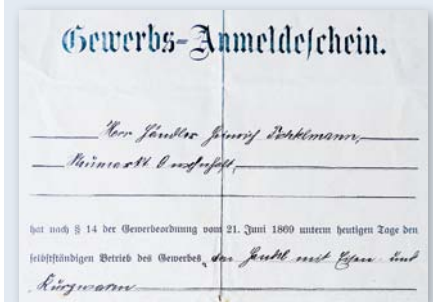 Gewerbs-Anmeldeschein.
Herr Händler Heinrich
Neumarkt
hat nach § 14 der Gewerbeordnung vom 21. Juni 1869 unterm heutigen Tage den
selbstständigen Betrieb des Gewerbes, den Handel mit Eisen- und
Kurzwaren